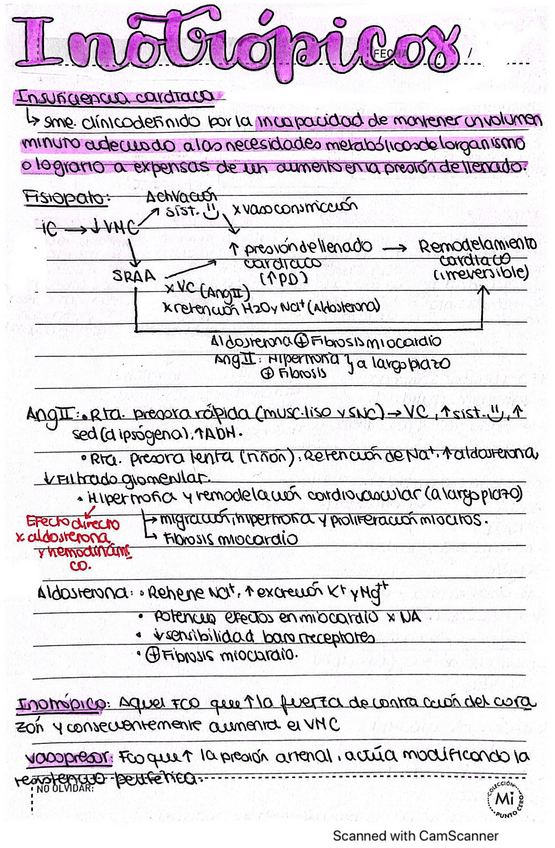 Inotrópicos
FECHA / /
Insuficiencia cardiaca
↳ sme. clínico definido por la incapacidad de mantener un volumen
minuto adecuado a las necesidades metabólicas del organismo
o lograrlo a expensas de un aumento en la presión de llenado.
Fisiopato: Activación
sist. :) x vasoconstricción
IC → ↓VMC
↑ presión de llenado → Remodelamiento
SRAA cardiaco cardiaco
(↑PD) (irreversible)
x VC (AngII)
x retención H2O y Na+ (Aldosterona)
Aldosterona ⊕ Fibrosis miocardio
AngII: Hipertrofia y a largo plazo
⊕ Fibrosis
AngII: • Rta. presora rápida (musc. liso y SNC) → VC, ↑ sist. :), ↑
sed (dipsógena), ↑ADH.
• Rta. presora lenta (riñon): Retención de Na+, ↑ aldosterona,
↓ Filtrado glomerular.
• Hipertrofia y remodelación cardiovascular (a largo plazo)
Efecto directo
x aldosterona
y hemodinámi
co.
↳ migración, hipertrofia y proliferación miocitos.
↳ Fibrosis miocardio
Aldosterona: • Retiene Na+, ↑ excreción K+ y Mg++
• Potencia efectos en miocardio x NA
• ↓ sensibilidad baroreceptores
• ⊕ Fibrosis miocardio.
Inotrópico: Aquel FCO que ↑ la fuerza de contracción del cora
zón y consecuentemente aumenta el VMC
Vasopresor: Fco que ↑ la presión arterial, actúa modificando la
resistencia periférica.
NO OLVIDAR:
COLECCIÓN
Mi
PUNTO CERO
Scanned with CamScanner